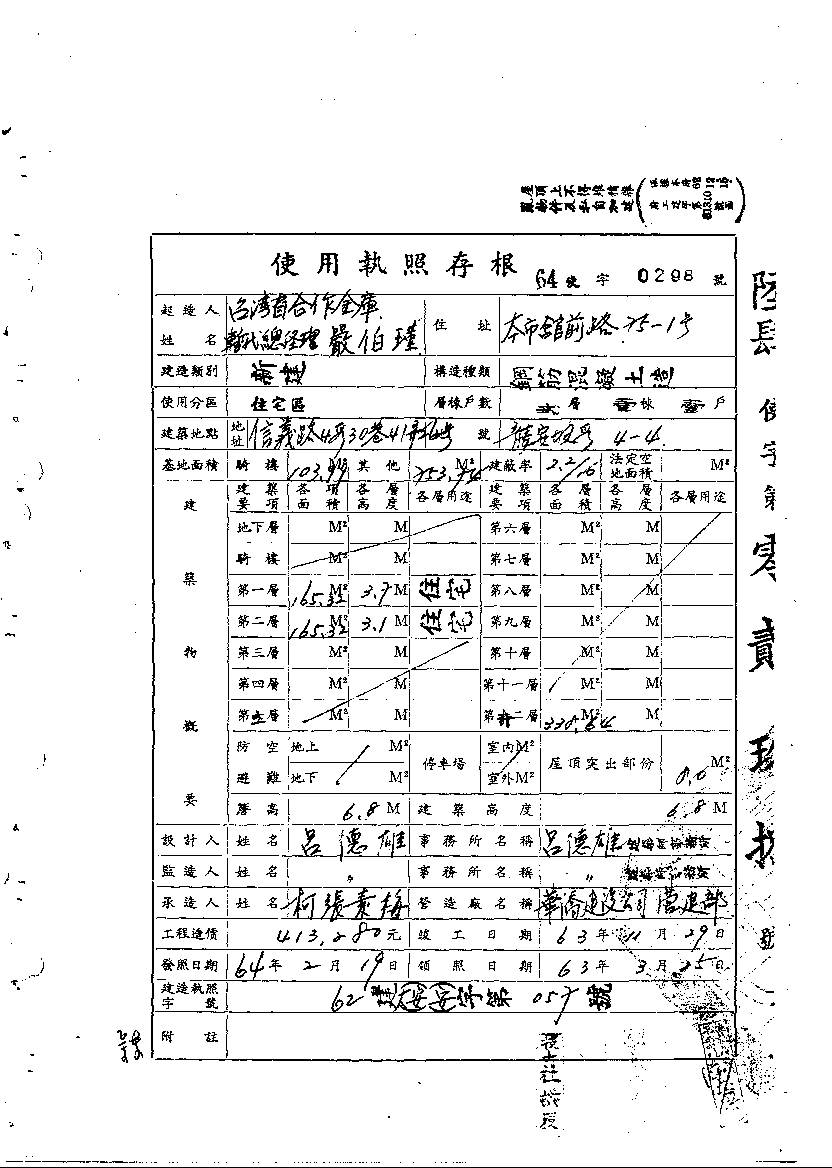 屋頂上不得堆積雜
使用執照存根
64使字 0298 號
起造人 台湾省合作金庫 住址 本市館前路75-1号
姓名 總經理 嚴伯瑾
建造類別 新建 構造種類 鋼筋混凝土造
使用分區 住宅區 層棟戶數 層 棟 戶
建築地點 地址 信義路4段30巷41弄 號 龍安坡段 4-4
基地面積 騎樓 103.99 M² 其他 253.74 M² 建蔽率 法定空地面積 M²
建築要項 各項面積 各層高度 各層用途 建築要項 各層面積 各層高度 各層用途
建築物概要
地下層 M² M 第六層 M² M
騎樓 M² M 第七層 M² M
第一層 165.32 M² 3.7 M 住宅 第八層 M² M
第二層 165.32 M² 3.1 M 住宅 第九層 M² M
第三層 M² M 第十層 M² M
第四層 M² M 第十一層 M² M
第五層 M² M 第十二層 330.64
防空避難 地上 M² 停車場 室內M² 屋頂突出部份 0.0 M²
地下 M² 室外M²
簷高 6.8 M 建築高度 6.8 M
設計人 姓名 呂德雄 事務所名稱 呂德雄
監造人 姓名 〃 事務所名稱 〃
承造人 姓名 柯張素梅 營造廠名稱 華僑建設公司營建部
工程造價 413,280元 竣工日期 63年11月29日
發照日期 64年2月19日 領照日期 63年3月25日
建造執照字號 62建(大安)(安)字第 057 號
附註
使字第零貳玖